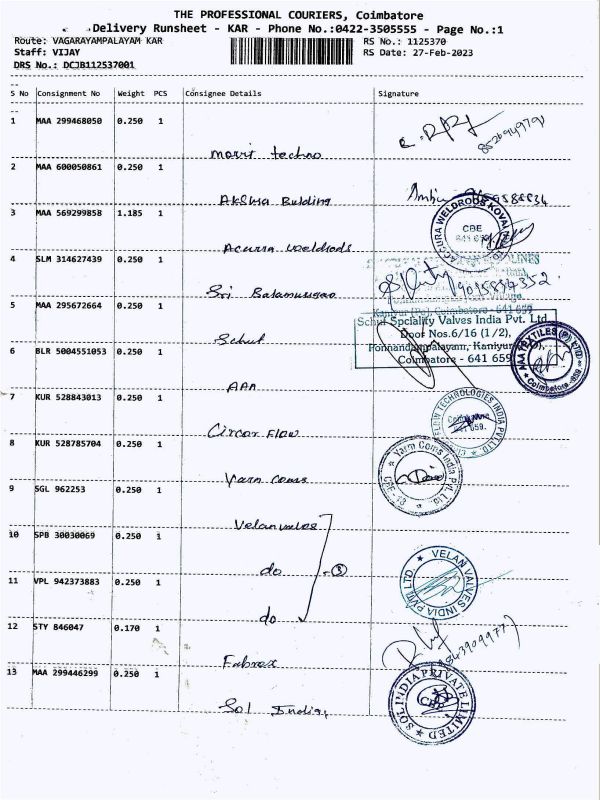 THE PROFESSIONAL COURIERS, Coimbatore
Delivery Runsheet - KAR - Phone No.:0422-3505555 - Page No.:1
Route: VAGARAYAMPALAYAM KAR
RS No.: 1125370
Staff: VIJAY
RS Date: 27-Feb-2023
DRS No.: DCJB112537001
S No Consignment No Weight PCS Consignee Details Signature
1 MAA 299468050 0.250 1
techno
2 MAA 600050861 0.250 1
Akshra Building
3 MAA 569299858 1.185 1
Acurra weeldrods
ACCURA WELDRODS KOVAI
CBE
641 659
4 SLM 314627439 0.250 1
Sri Balamurugan
Kaniyur (Po), Coimbatore - 641 659
5 MAA 295672664 0.250 1
Schuf
Schuf Spciality Valves India Pvt. Ltd.
Door Nos.6/16 (1/2),
Ponnandampalayam, Kaniyur
Coimbatore - 641 659
6 BLR 5004551053 0.250 1
AAA
AAA TEXTILES (P) LTD
Coimbatore-659
7 KUR 528843013 0.250 1
Circor Flow
TECHNOLOGIES INDIA PVT LTD
641 659.
8 KUR 528785704 0.250 1
Yarn coms
Yarn Coms India Pvt. Ltd
9 SGL 962253 0.250 1
Velanvalves
10 SPB 30030069 0.250 1
do - 3
VELAN VALVES INDIA PVT LTD.
11 VPL 942373883 0.250 1
do
12 STY 846047 0.170 1
Fabrox
13 MAA 299446299 0.250 1
Sol India,
SOL INDIA PRIVATE LIMITED
CBE